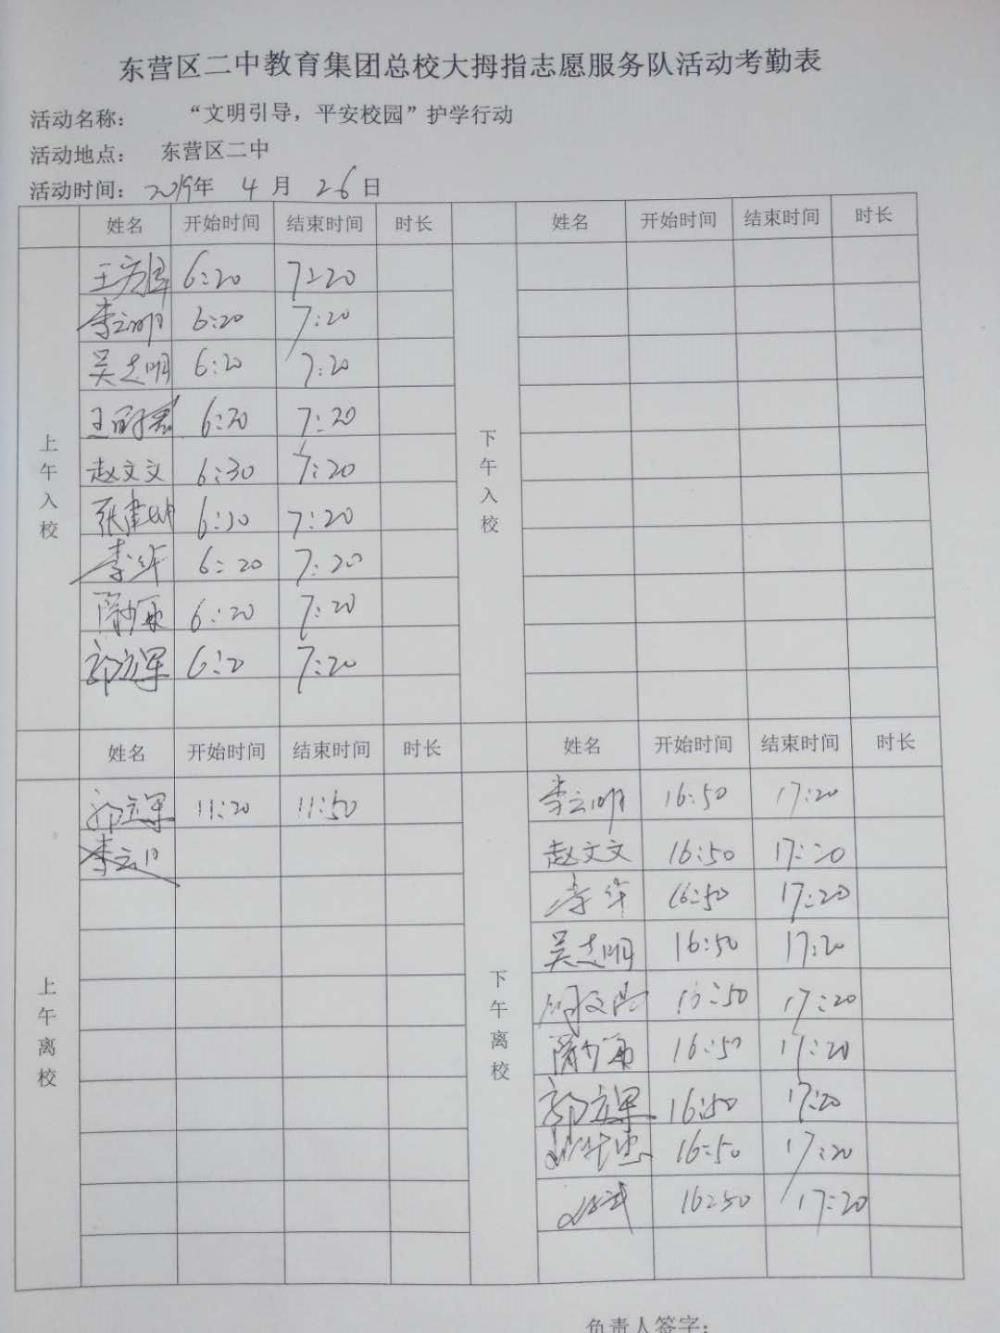 东营区二中教育集团总校大拇指志愿服务队活动考勤表
活动名称： “文明引导，平安校园”护学行动
活动地点： 东营区二中
活动时间：2019年 4 月 26 日
姓名 开始时间 结束时间 时长 姓名 开始时间 结束时间 时长
上午入校
6:20 7:20
李云明 6:20 7:20
吴志明 6:20 7:20
6:20 7:20
赵文文 6:30 7:20
7:20
李华 6:20 7:20
6:20 7:20
郭立军 6:20 7:20
下午入校
姓名 开始时间 结束时间 时长 姓名 开始时间 结束时间 时长
上午离校
郭立军 11:20 11:50
下午离校
李云明 16:50 17:20
赵文文 16:50 17:20
李华 16:50 17:20
吴志明 16:50 17:20
16:50 17:20
16:50 17:20
郭立军 16:50 17:20
16:50 17:20
16:50 17:20
负责人签字：